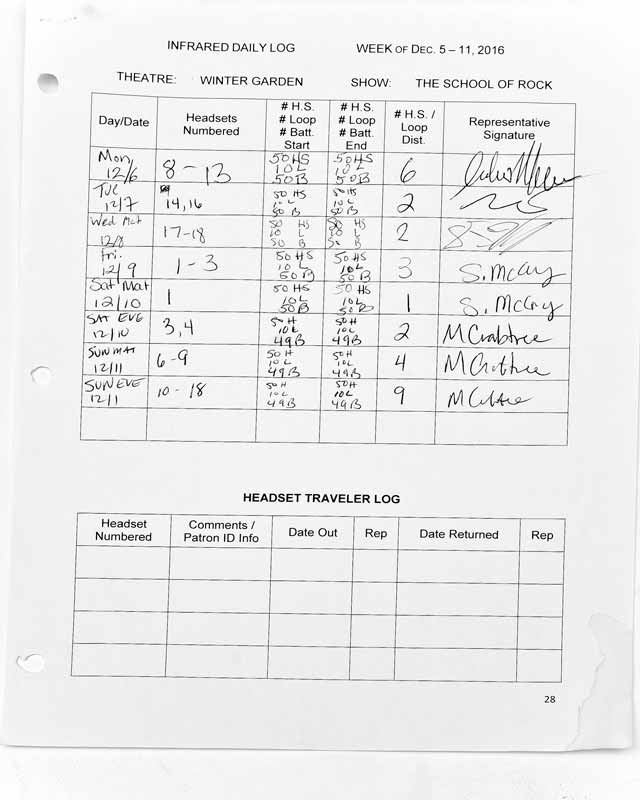 INFRARED DAILY LOG WEEK OF DEC. 5 – 11, 2016
THEATRE: WINTER GARDEN SHOW: THE SCHOOL OF ROCK
Day/Date Headsets Numbered # H.S. # Loop # Batt. Start # H.S. # Loop # Batt. End # H.S. / Loop Dist. Representative Signature
Mon 12/6 8 - 13 50 HS 10 L 50 B 50 HS 10 L 50 B 6
Tue 12/7 14, 16 50 HS 10 L 50 B 50 HS 10 L 50 B 2
Wed Mat 12/8 17-18 50 HS 10 L 50 B 50 HS 10 L 50 B 2
Fri. 12/9 1 - 3 50 HS 10 L 50 B 50 HS 10 L 50 B 3 S. McCay
Sat Mat 12/10 1 50 HS 10 L 50 B 50 HS 10 L 50 B 1 S. McCay
SAT EVE 12/10 3, 4 50 H 10 L 49 B 50 H 10 L 49 B 2 M Crabtree
SUN MAT 12/11 6 - 9 50 H 10 L 49 B 50 H 10 L 49 B 4 M Crabtree
SUN EVE 12/1 10 - 18 50 H 10 L 49 B 50 H 10 L 49 B 9 M Crabtree
HEADSET TRAVELER LOG
Headset Numbered Comments / Patron ID Info Date Out Rep Date Returned Rep
28